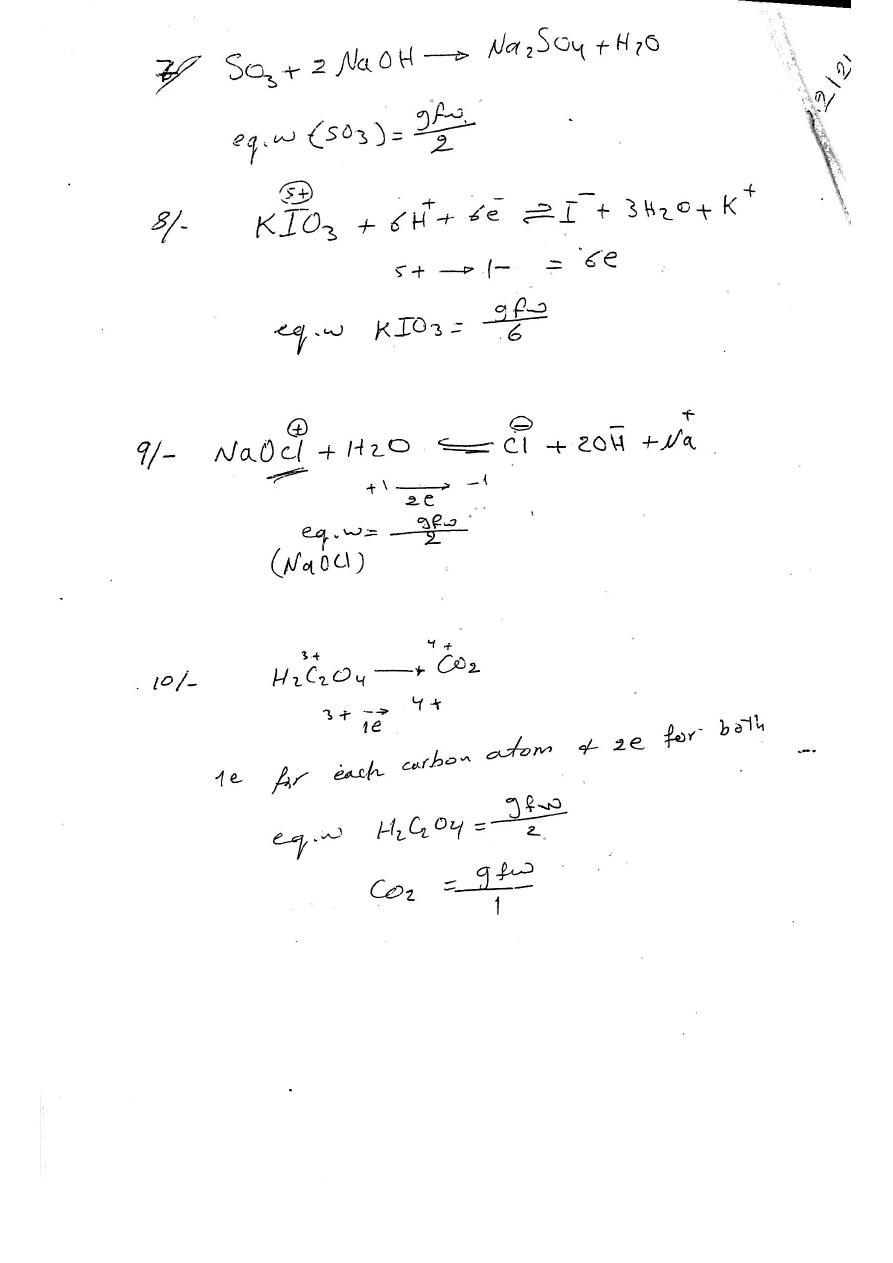 7/ SO3 + 2 NaOH → Na2SO4 + H2O
eq.w (SO3) = gfw/2
8/- KIO3 (5+) + 6H+ + 6e- ⇌ I- + 3H2O + K+
5+ → 1- = 6e
eq.w KIO3 = gfw/6
9/- NaOCl (+) + H2O ⇌ Cl (-) + 2OH- + Na+
+1 → -1
2e
eq.w = gfw/2
(NaOCl)
10/- H2C2O4 (3+) → CO2 (4+)
3+ → 4+
1e
1e for each carbon atom & 2e for both
eq.w H2C2O4 = gfw/2
CO2 = gfw/1